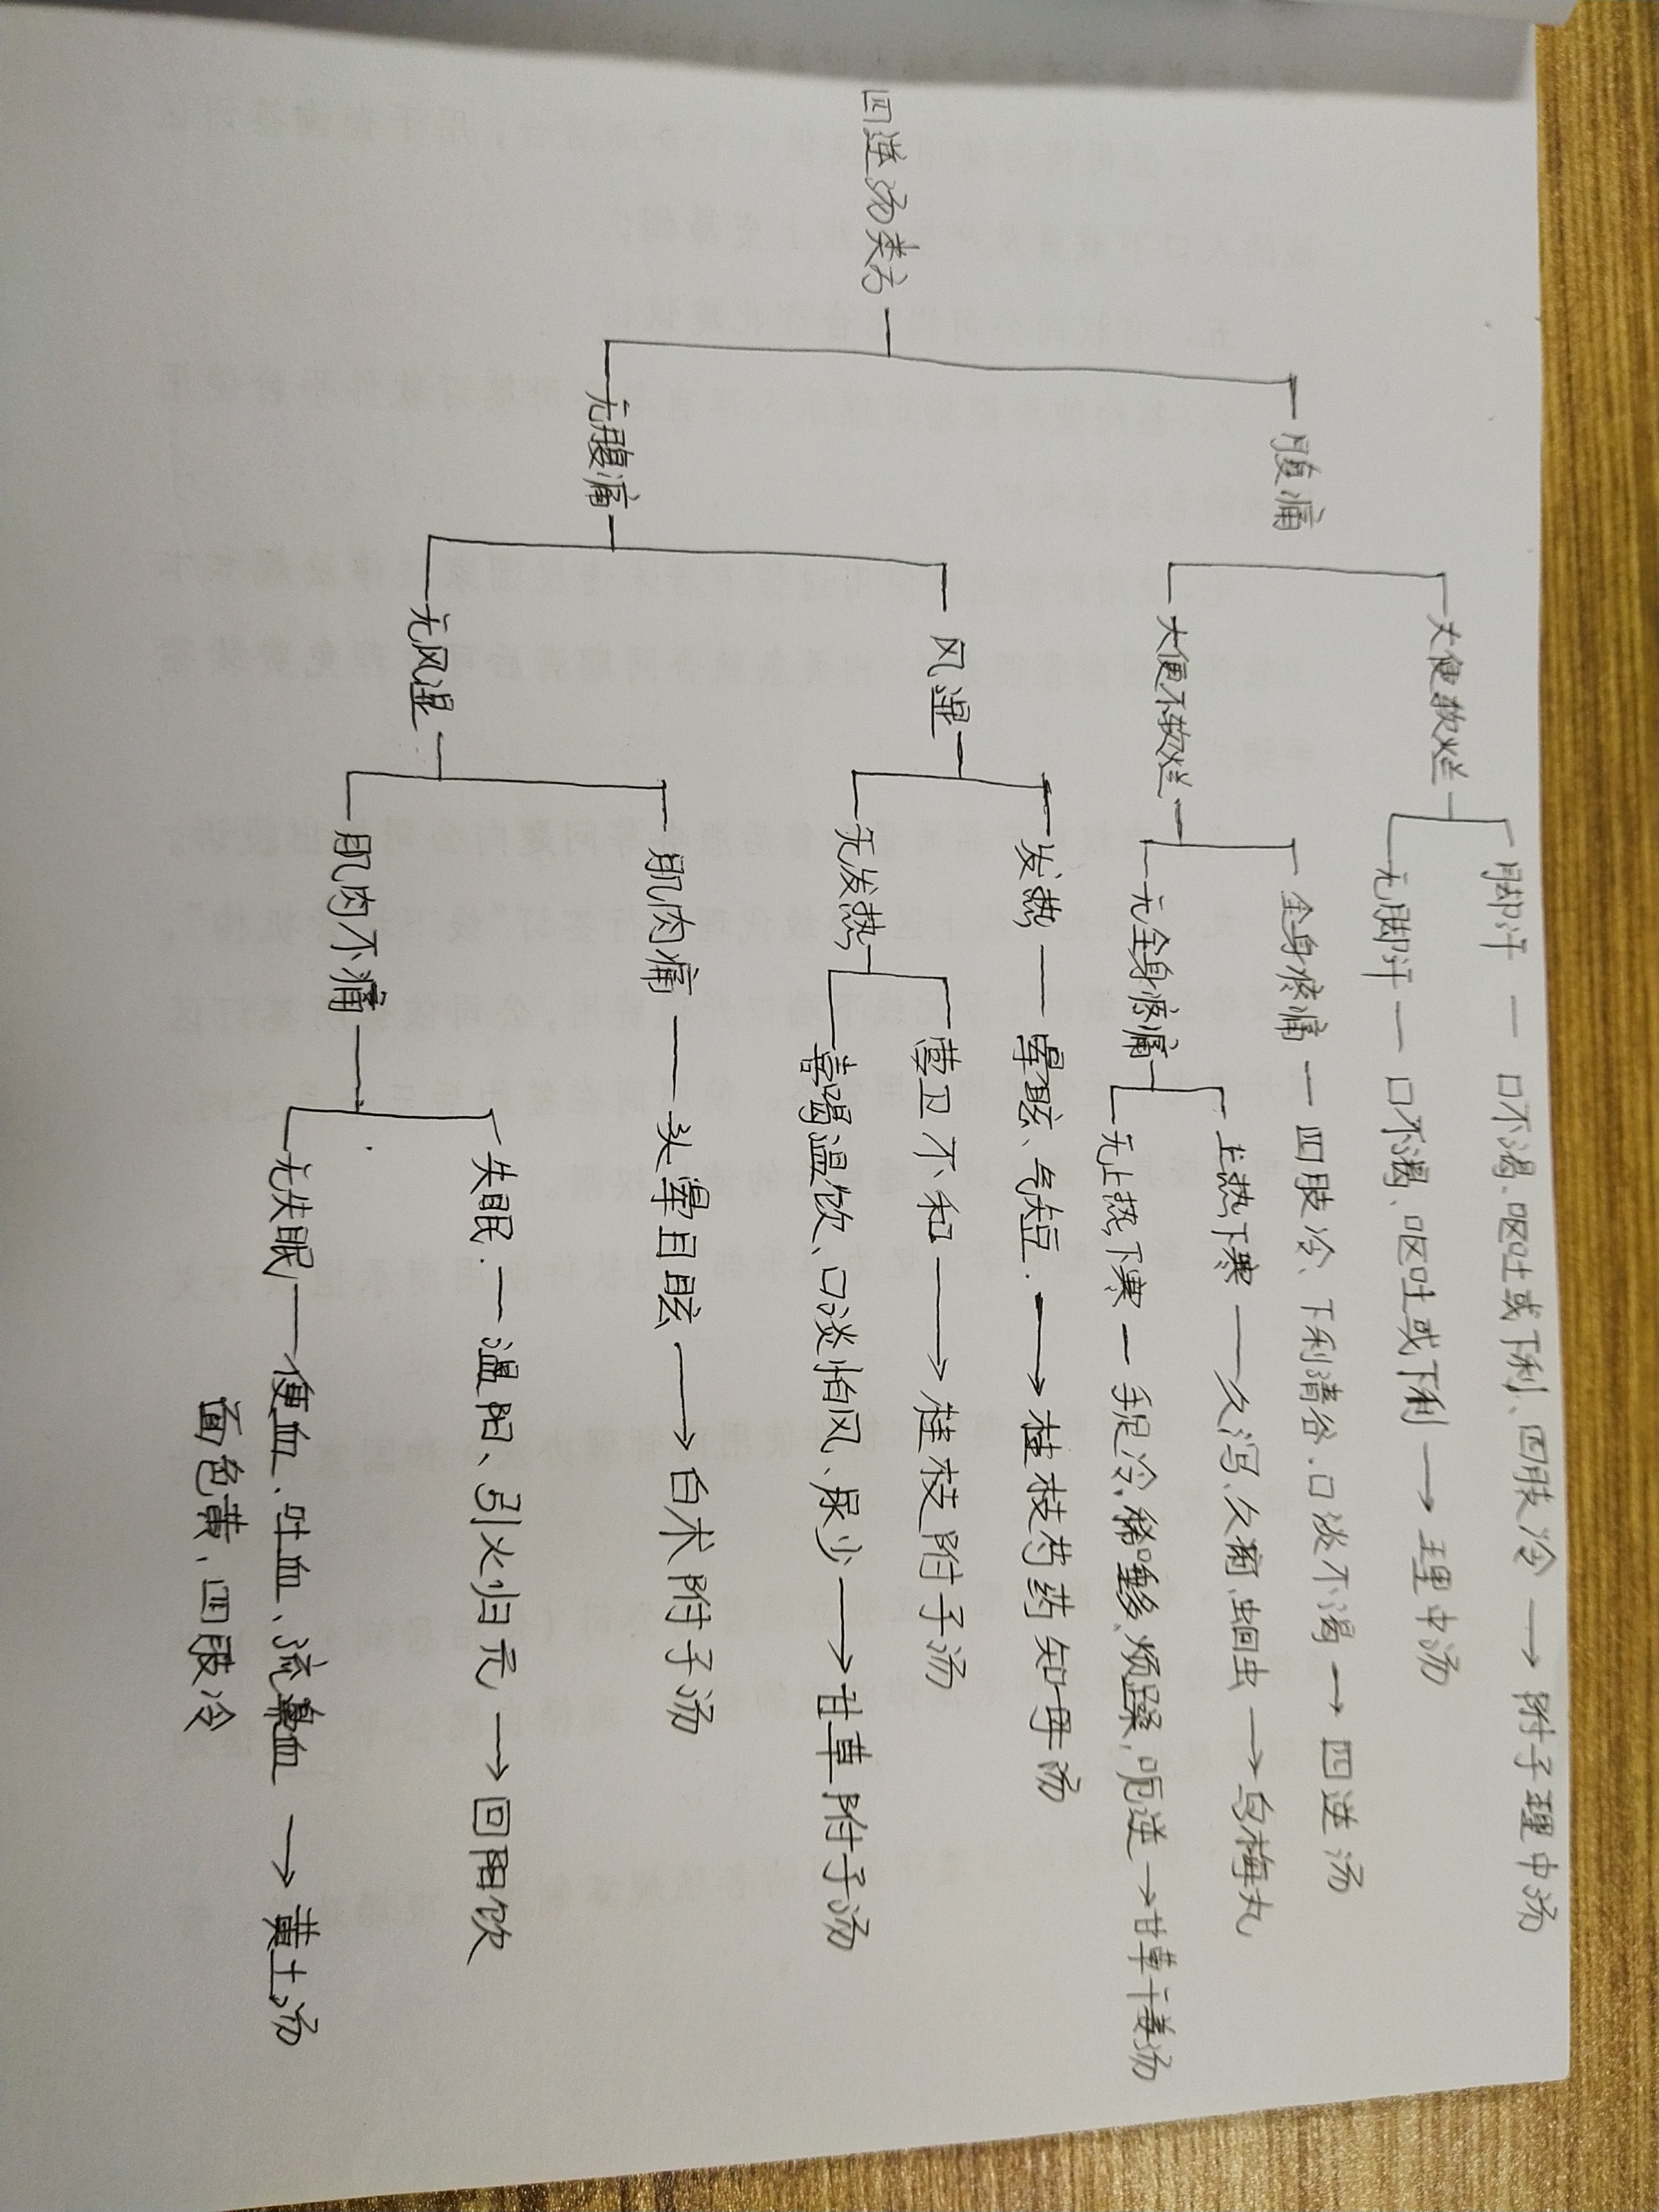 四逆汤类方
腹痛
大便软烂
脚汗 — 口不渴、呕吐或下利、四肢冷 → 附子理中汤
无脚汗 — 口不渴、呕吐或下利 → 理中汤
大便不软烂
全身疼痛 — 四肢冷、下利清谷、口淡不渴 → 四逆汤
无全身疼痛
上热下寒 — 久泻、久痢、蛔虫 → 乌梅丸
无上热下寒 — 手足冷、稀唾多、烦躁、呃逆 → 甘草干姜汤
无腹痛
风湿
发热 — 晕眩、气短 → 桂枝芍药知母汤
无发热
营卫不和 → 桂枝附子汤
喜喝温饮、口淡怕风、尿少 → 甘草附子汤
无风湿
肌肉痛 — 头晕目眩 → 白术附子汤
肌肉不痛
失眠 — 温阳、引火归元 → 回阳饮
无失眠 — 便血、吐血、流鼻血 → 黄土汤
面色黄、四肢冷